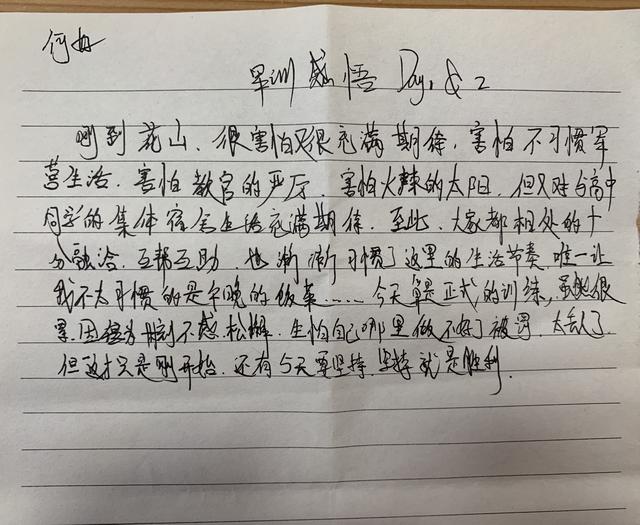 何
军训感悟 Day1 & 2
刚到花山、很害怕又很充满期待，害怕不习惯军
营生活，害怕教官的严厉，害怕火辣的太阳，但又对与高中
同学的集体宿舍生活充满期待。至此，大家都相处的十
分融洽，互帮互助，也渐渐习惯了这里的生活节奏，唯一让
我不太习惯的是午晚的饭菜……今天算是正式的训练，虽然很
累，时刻不感松懈，生怕自己哪里做不好了被罚，太丢人了
但这才只是刚开始，还有5天要坚持，坚持就是胜利。